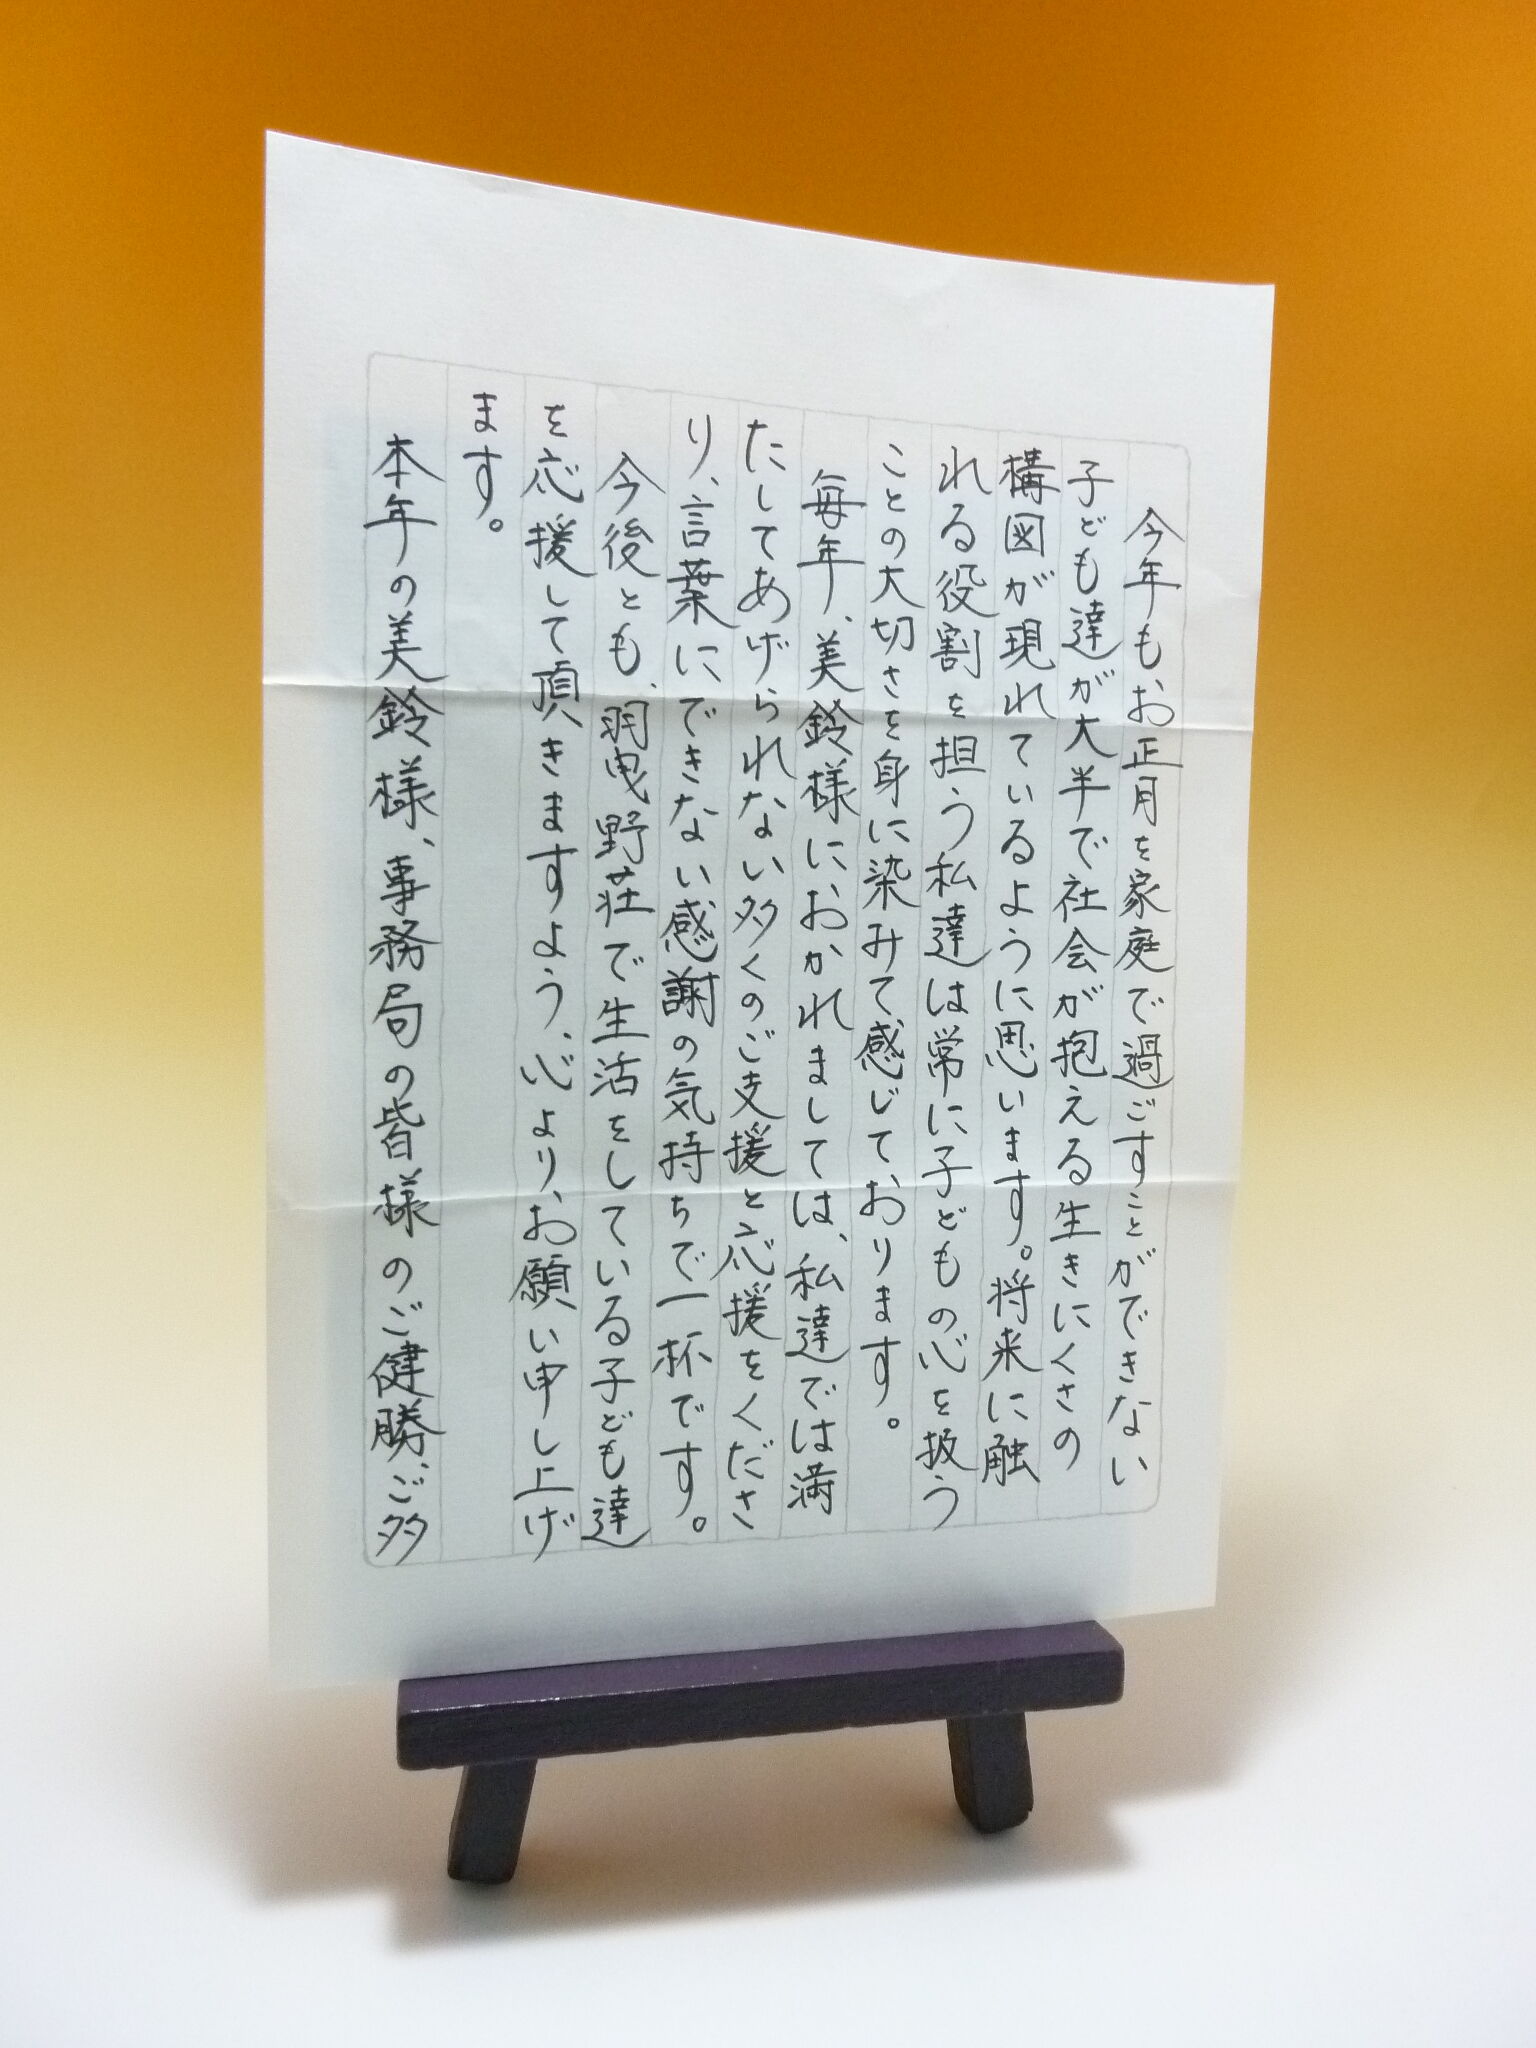 今年も、お正月を家庭で過ごすことができない
子ども達が大半で社会が抱える生きにくさの
構図が現れているように思います。将来に触
れる役割を担う私達は常に子どもの心を扱う
ことの大切さを身に染みて感じております。
毎年、美鈴様におかれましては、私達では満
たしてあげられない多くのご支援と応援をくださ
り、言葉にできない感謝の気持ちで一杯です。
今後とも、羽曳野荘で生活をしている子ども達
を応援して頂きますよう、心より、お願い申し上げ
ます。
本年の美鈴様、事務局の皆様のご健勝、ご多